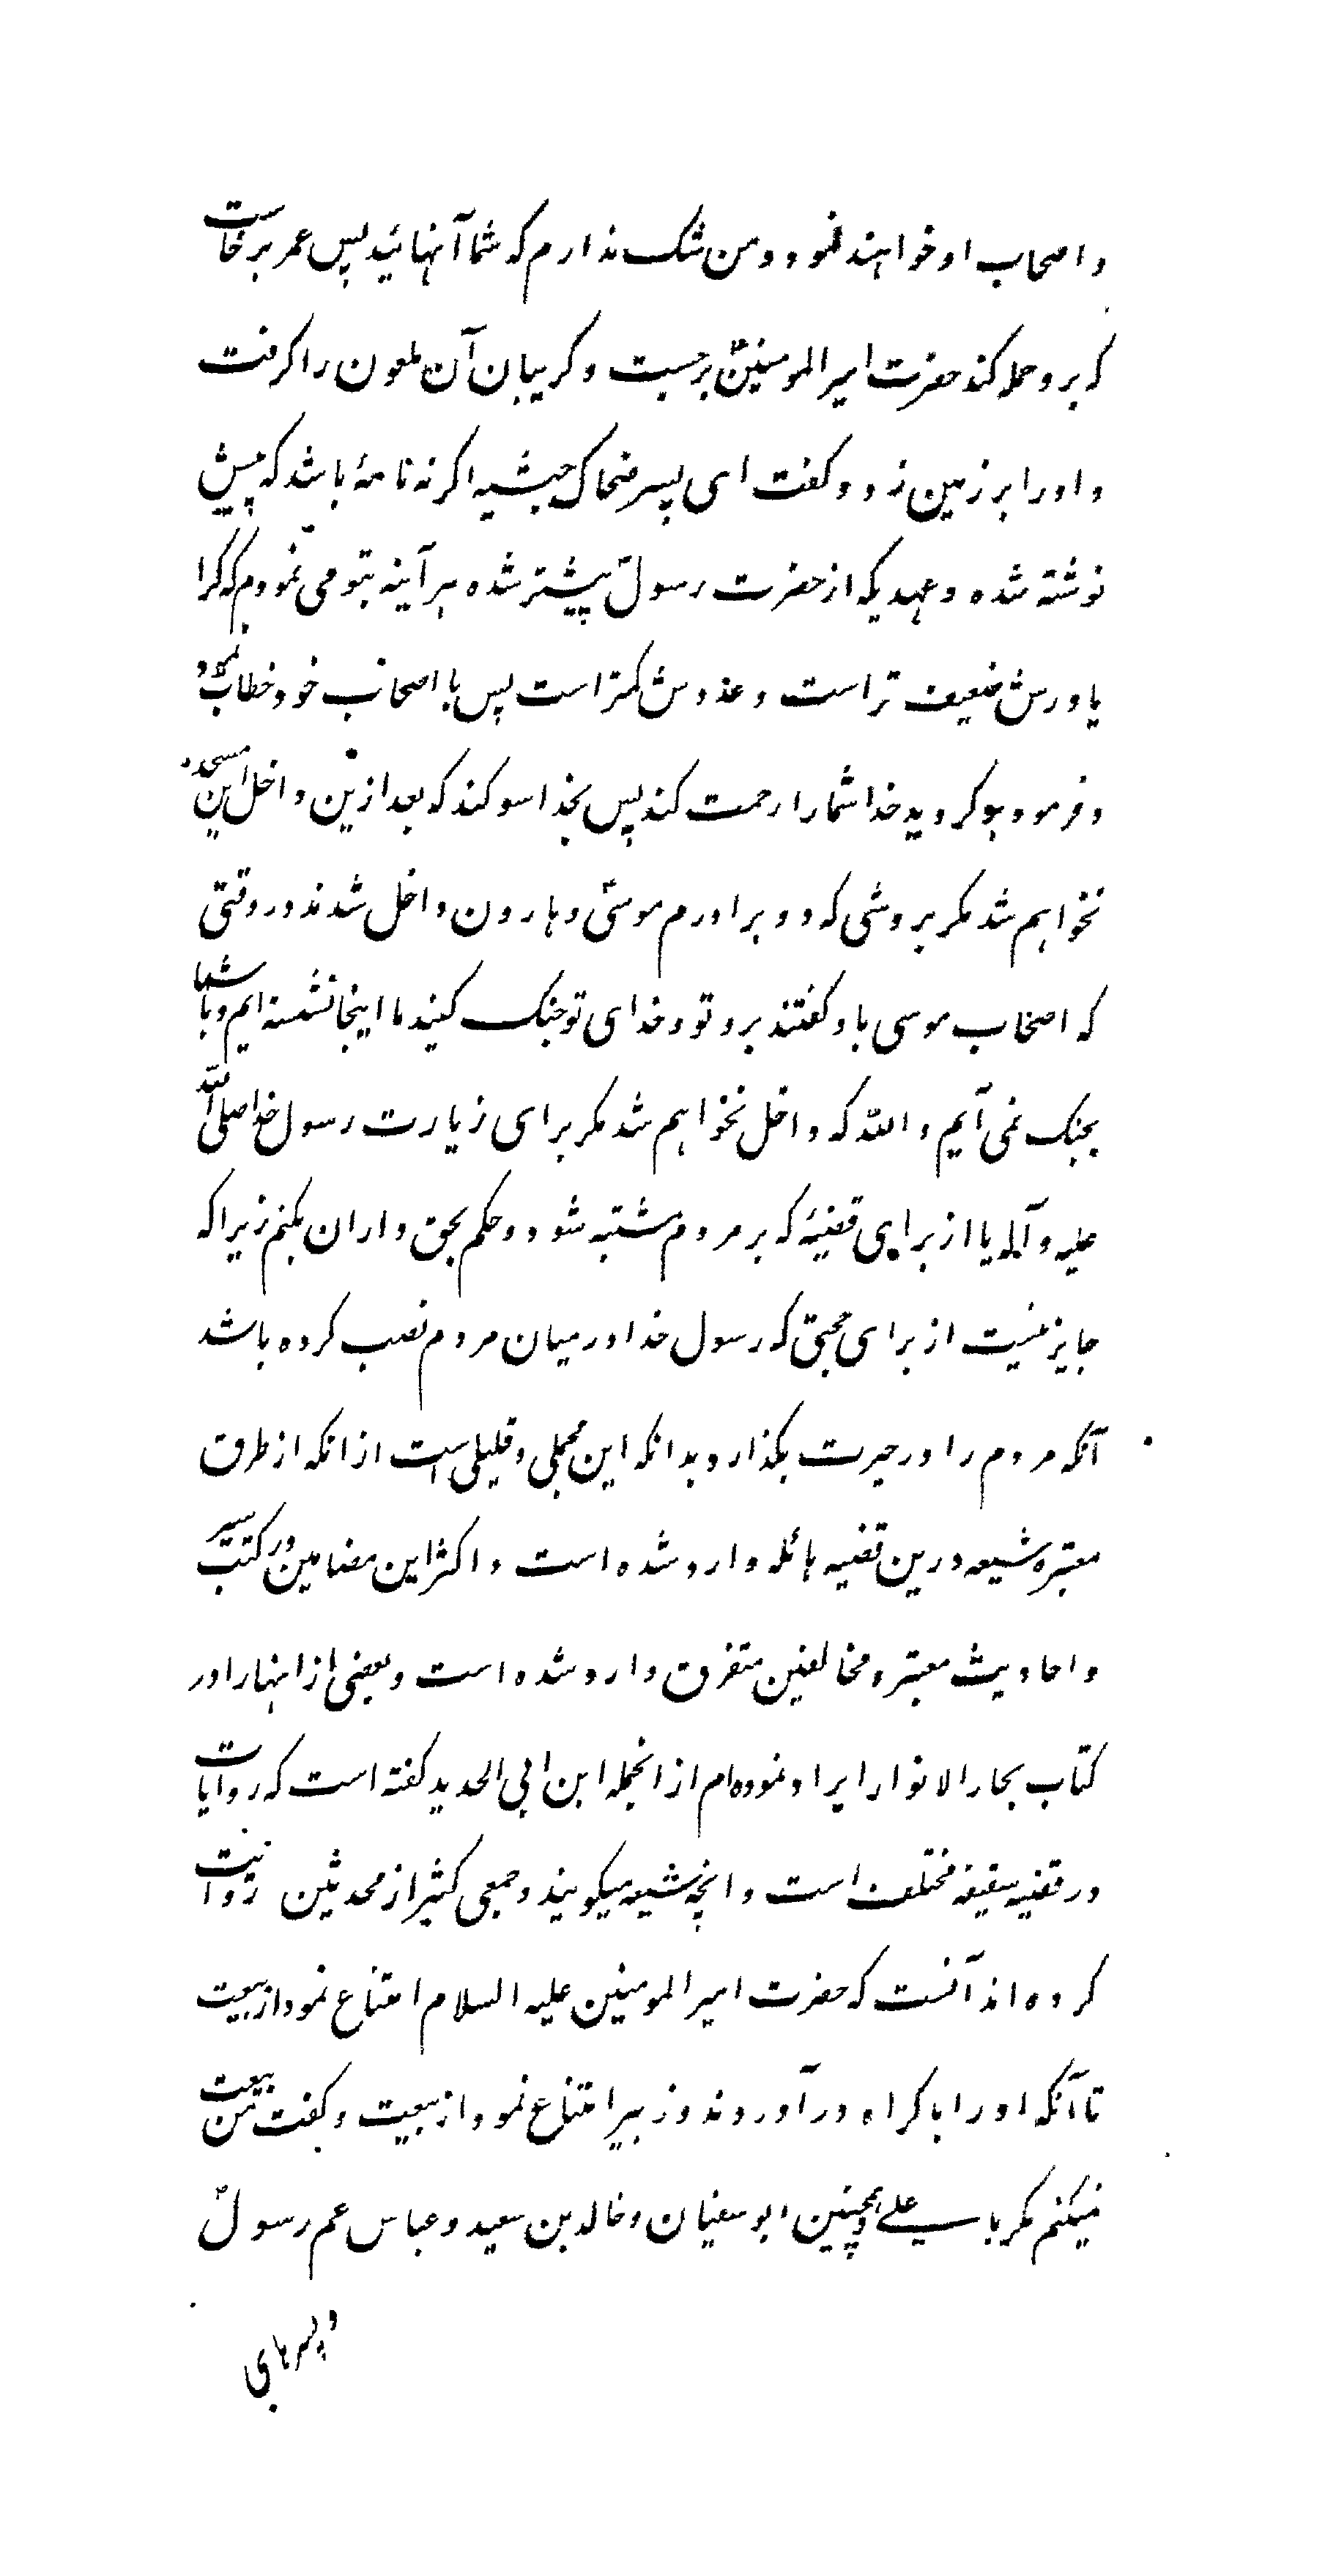 و اصحاب او خواهند نمود و من شک ندارم که شما آنهائید پس عمر برخاست
که برو حمله کند حضرت امیر المومنینؑ برجست و کریبان آن ملعون را کرفت
و اورا بر زمین زد و کفت ای پسر ضحاک حبشیه اکر نه نامۀ باشد که پیش
نوشته شده و عهدیکه از حضرت رسولؐ پیشتر شده هر آینه بتو می نمودم که کرا
یاورش ضعیف تر است و عددش کمتر است پس با اصحاب خود خطاب نمود
و فرمود برکردید خدا شمارا رحمت کند پس بخدا سوکند که بعد ازین داخل این مسجد
نخواهم شد مکر بروشی که دو برادرم موسیؑ و هارون داخل شدند در وقتی
که اصحاب موسی باو کفتند برو تو و خدای تو جنک کنید ما اینجا نشسته ایم و با شما
بجنک نمی آیم والله که داخل نخواهم شد مکر برای زیارت رسول خدا صلی الله
علیه و آله یا از برای قضیۀ که بر مردم مشتبه شود و حکم بحق دران بکنم زیرا که
جایز نیست از برای حجتی که رسول خدا در میان مردم نصب کرده باشد
آنکه مردم را در حیرت بکذارد بدانکه این مجملی و قلیلی است از انکه از طرق
معتبره شیعه درین قضیه هائله وارد شده است و اکثر این مضامین در کتب سیر
و احادیث معتبره مخالفین متفرق وارد شده است و بعضی از انها را در
کتاب بحار الانوار ایراد نموده ام از انجمله ابن ابی الحدید کفته است که روایات
در قضیه سقیفه مختلف است و انچه شیعه میکویند و جمعی کثیر از محدثین روایت
کرده اند آنست که حضرت امیر المومنین علیه السلام امتناع نمود از بیعت
تا آنکه اورا باکراه در آوردند و زبیر امتناع نمود از بیعت و کفت من بیعت
نمیکنم مکر با علی و همچنین ابو سفیان و خالد بن سعید و عباس عم رسولؐ
و پسرهای